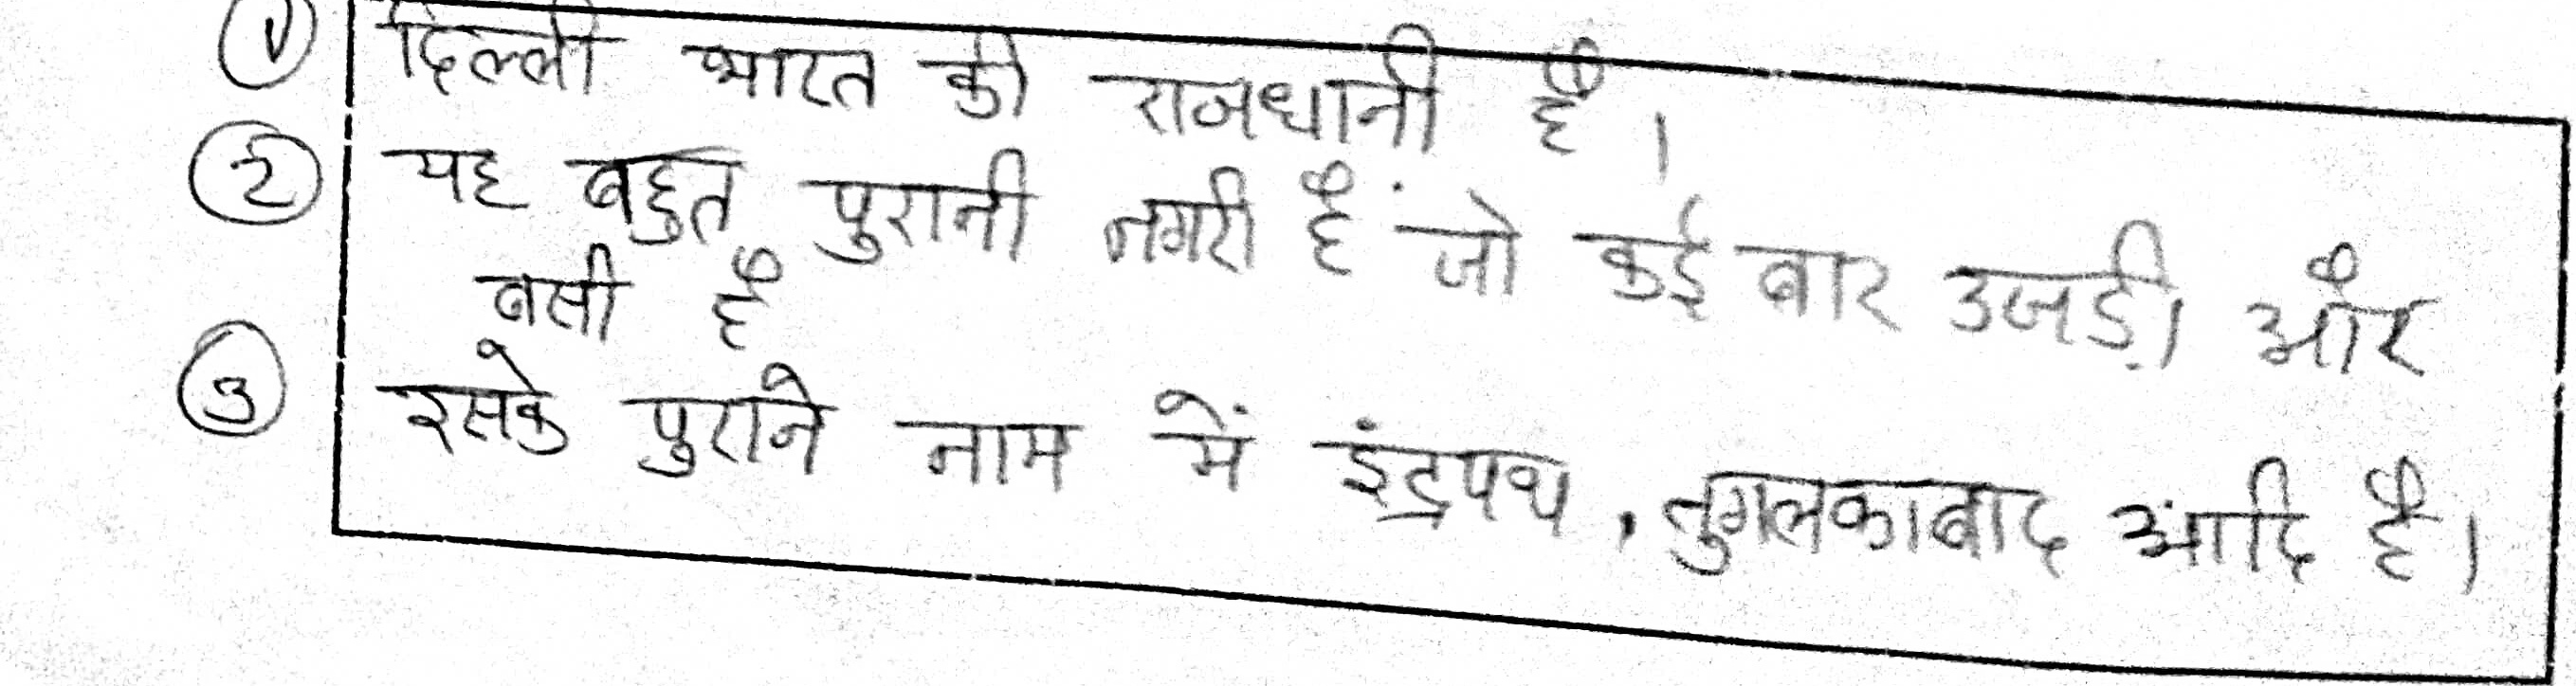 ① दिल्ली भारत की राजधानी है।
② यह बहुत पुरानी नगरी हैं जो कई बार उजड़ी और
बसी है
③ इसके पुराने नाम में इंद्रपथ, तुगलकाबाद आदि है।